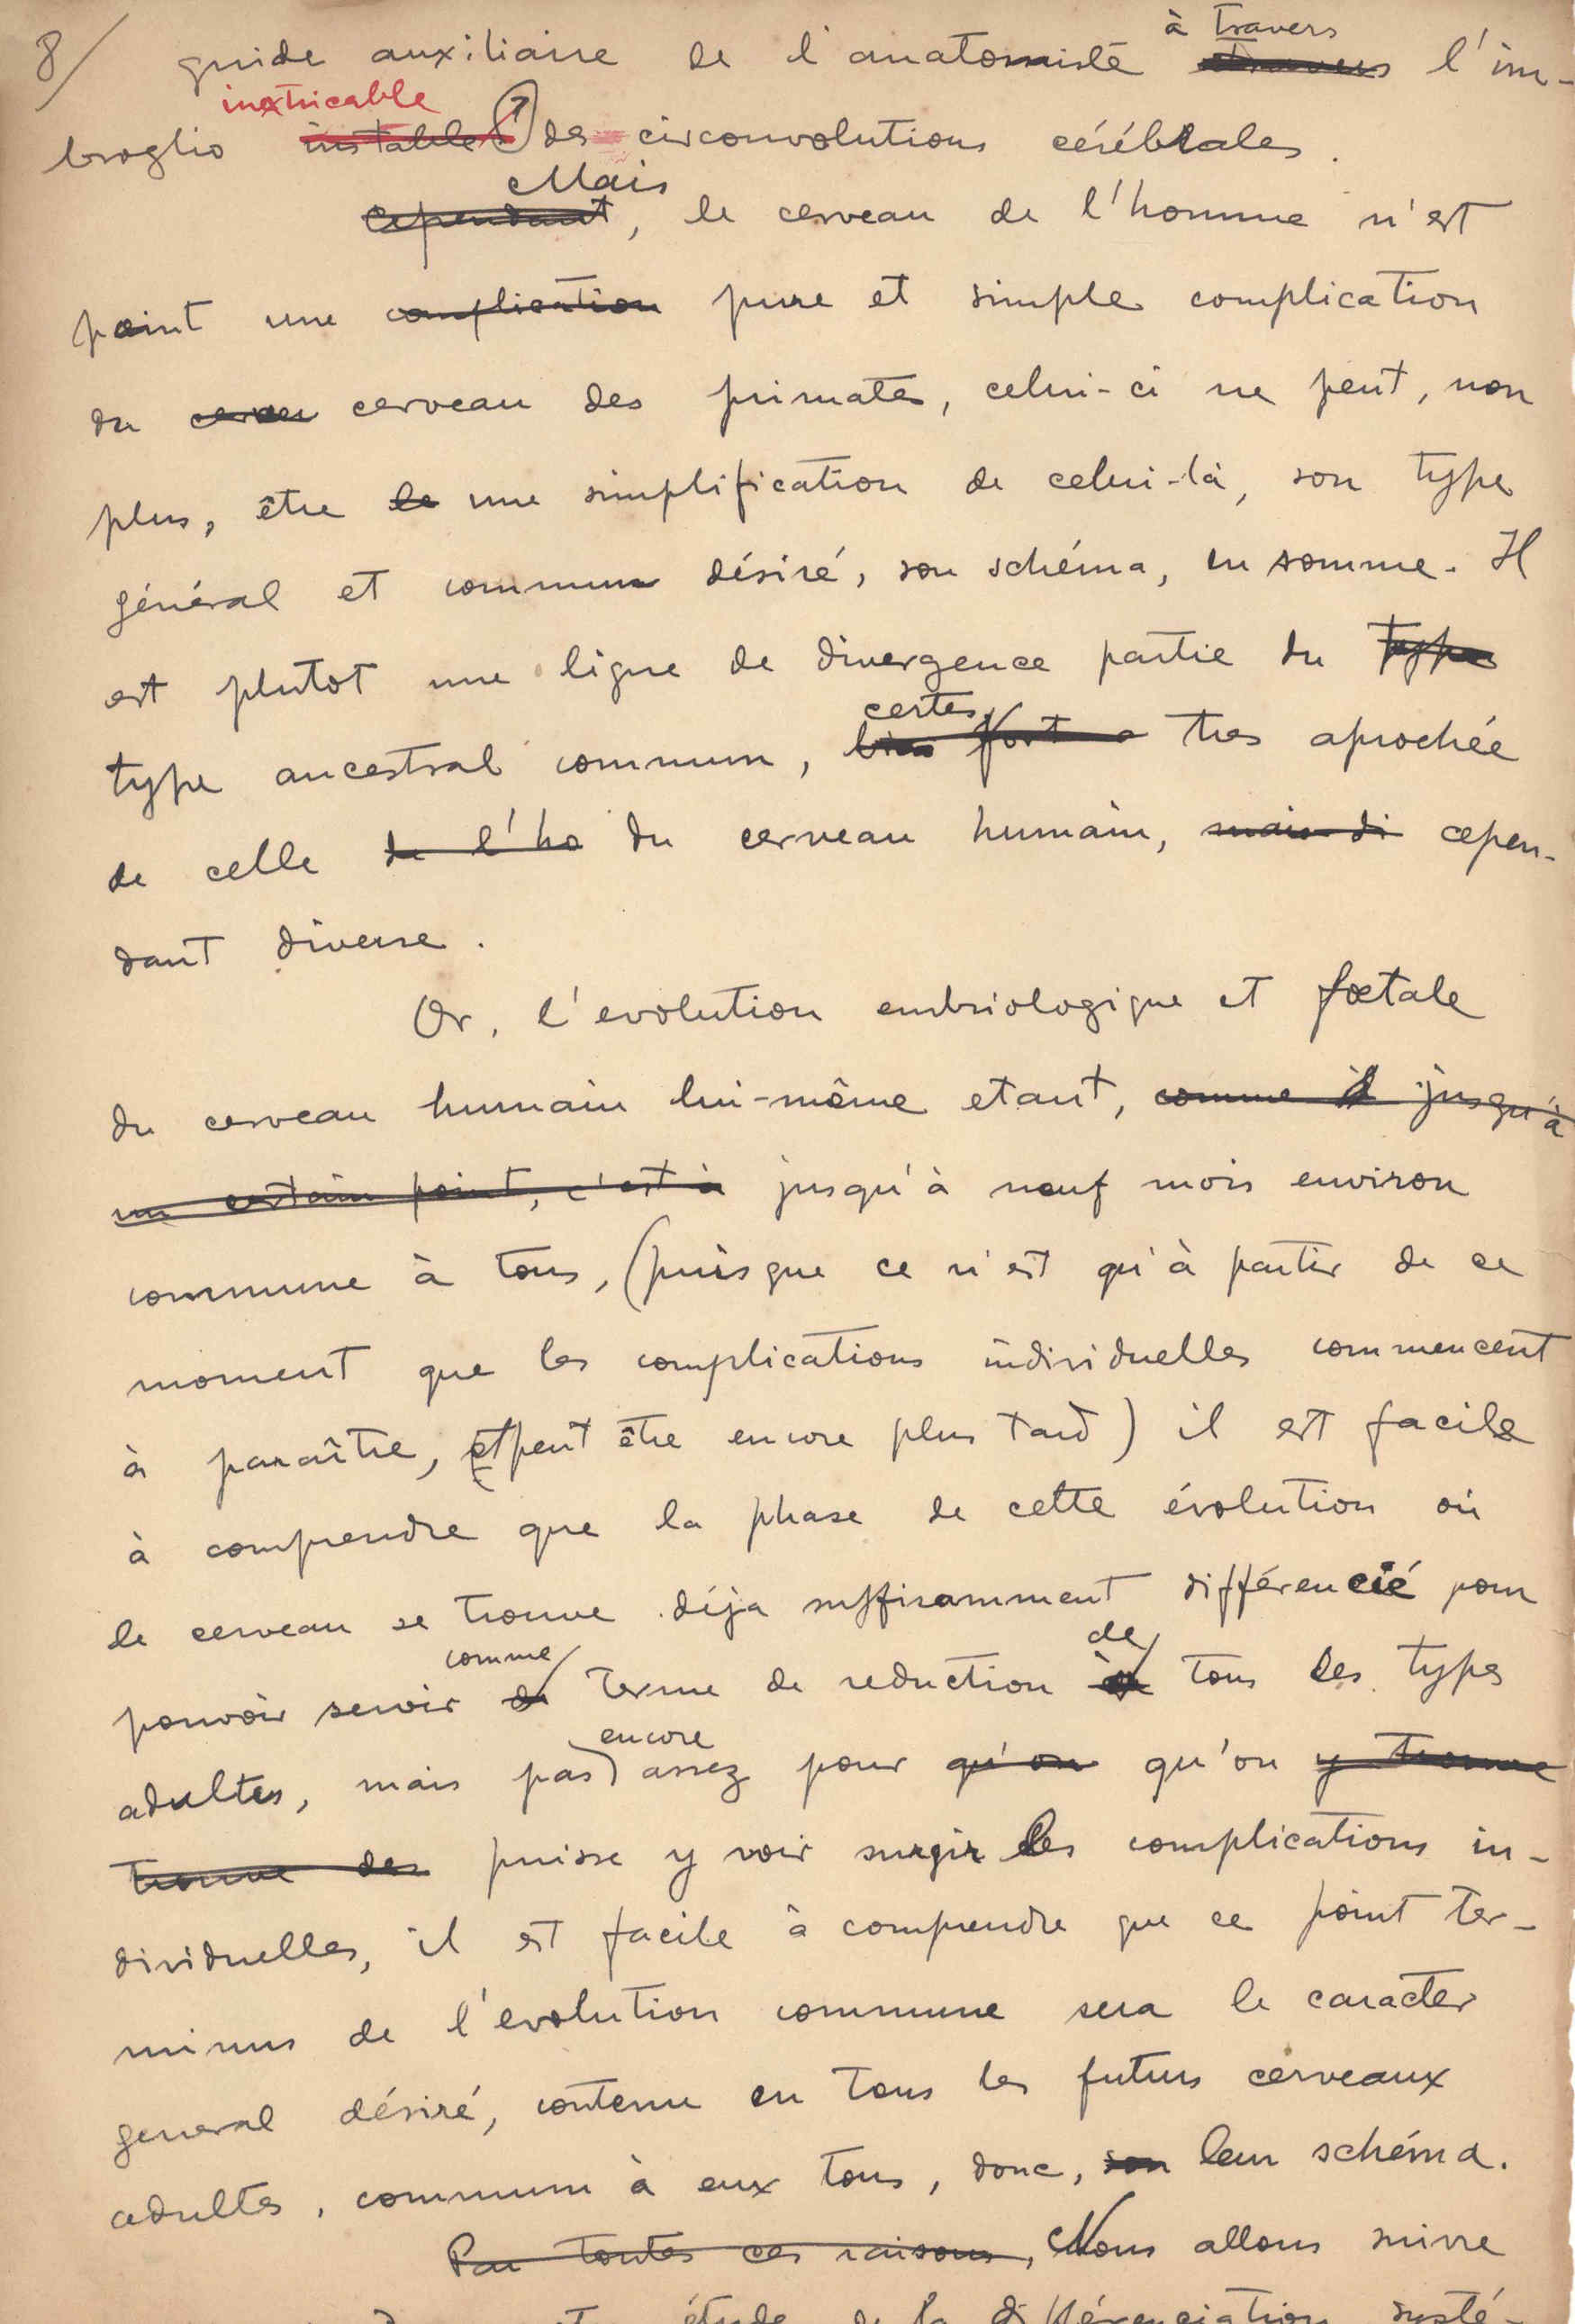 8/ guide auxiliaire de l'anatomiste à travers l'im-
broglio inextricable des circonvolutions cérébrales.
Mais, le cerveau de l'homme n'est
point une complication pure et simple complication
du cerveau des primates, celui-ci ne peut, non
plus, être le une simplification de celui-là, son type
général et commun désiré, son schéma, en somme. Il
est plutot une ligne de divergence partie du type
type ancestral commun, certes, tres aprochée
de celle de l'ho du cerveau humain, mais di cepen-
dant diverse.
Or, l'evolution embriologique et fœtale
du cerveau humain lui-même etant, comme il jusqu'à
un certain point, c'est à jusqu'à neuf mois environ
commune à tous, (puisque ce n'est qu'à partir de ce
moment que les complications individuelles commencent
à paraître, et peut être encore plus tard) il est facile
à comprendre que la phase de cette évolution où
le cerveau se trouve déja suffisamment différencié pour
pouvoir servir comme terme de reduction de tous les types
adultes, mais pas encore assez pour qu'on qu'on y trouve
trouve des puisse y voir surgir les complications in-
dividuelles, il est facile à comprendre que ce point ter-
minus de l'evolution commune sera le caracter
general désiré, contenu en tous les futurs cerveaux
adultes, commun à eux tous, donc, son leur schéma.
Par toutes ces raisons, Nous allons suivre
étude de la différenciation